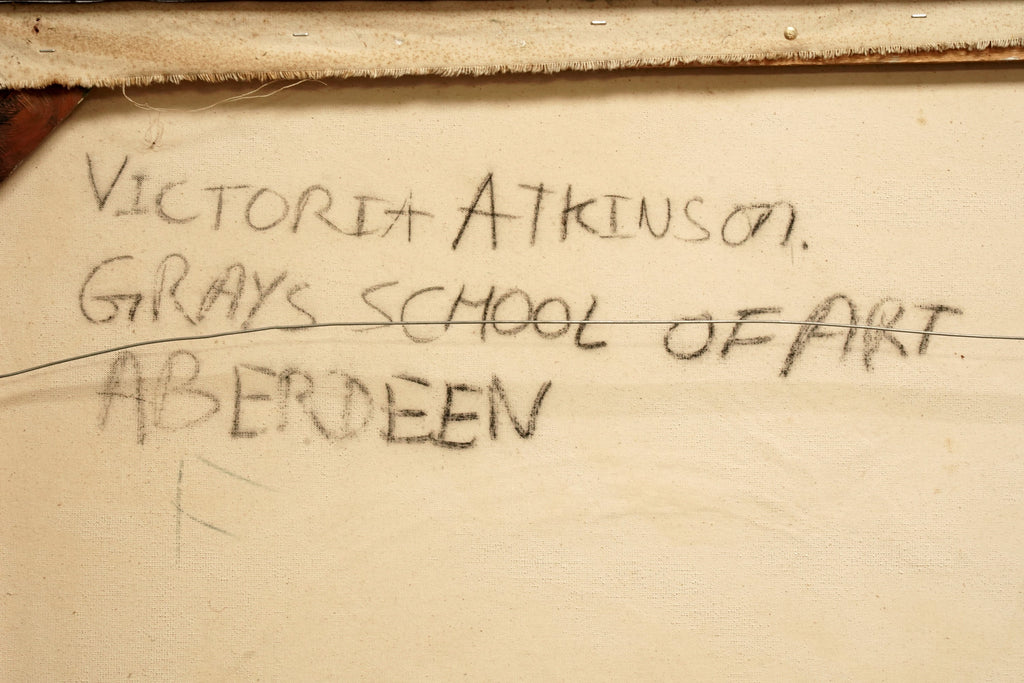 VICTORIA ATKINSON.
GRAYS SCHOOL OF ART
ABERDEEN
F